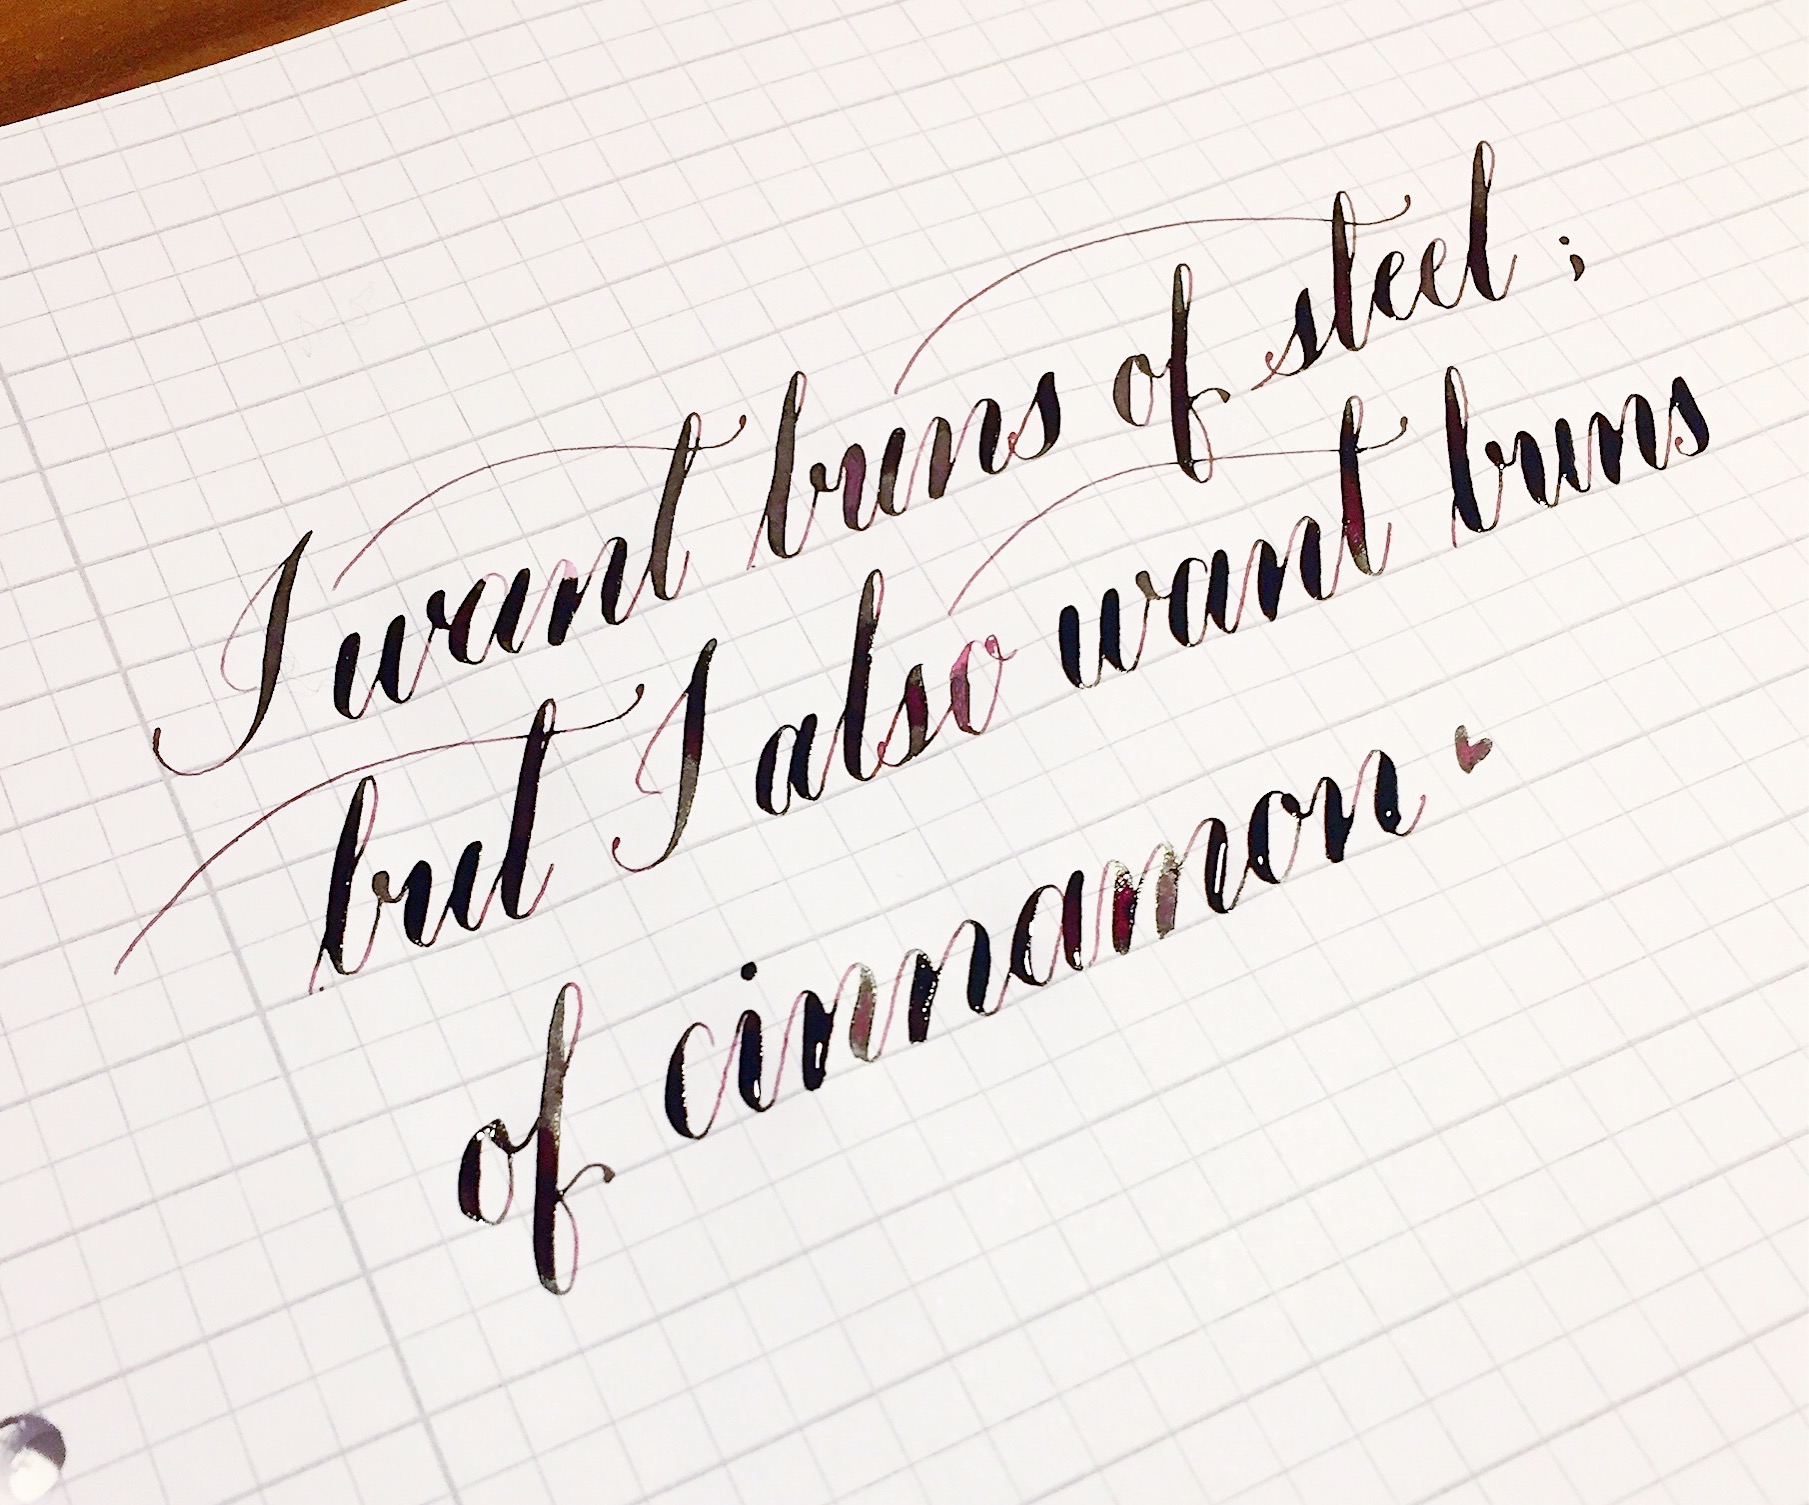 I want buns of steel;
but I also want buns
of cinnamon